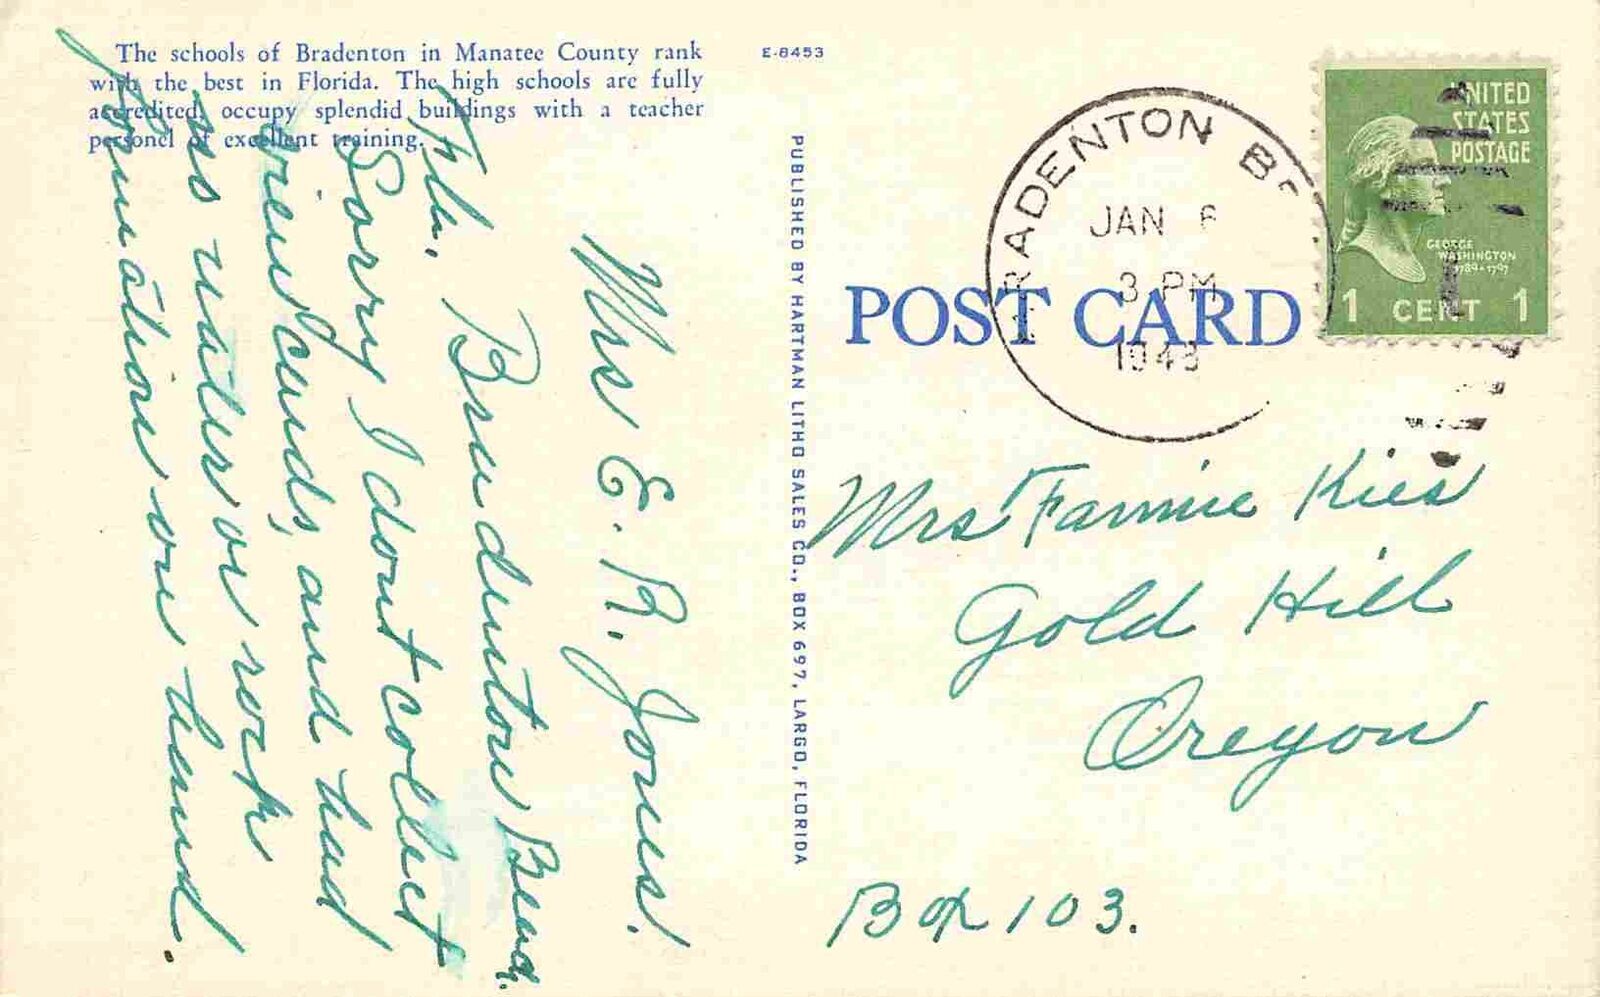 The schools of Bradenton in Manatee County rank
with the best in Florida. The high schools are fully
accredited, occupy splendid buildings with a teacher
personel of excellent training.
E-8453
Mrs E. R. Jones.
Fla. Bradenton Beach.
Sorry I dont collect
view cards, and had
no water or rock
formation on hand.
PUBLISHED BY HARTMAN LITHO SALES CO., BOX 697, LARGO, FLORIDA
POST CARD
BRADENTON
JAN 6
3 PM
UNITED
STATES
POSTAGE
GEORGE
WASHINGTON
1789-1797
1 CENT 1
Mrs Fannie Kies
Gold Hill
Oregon
Box 103.